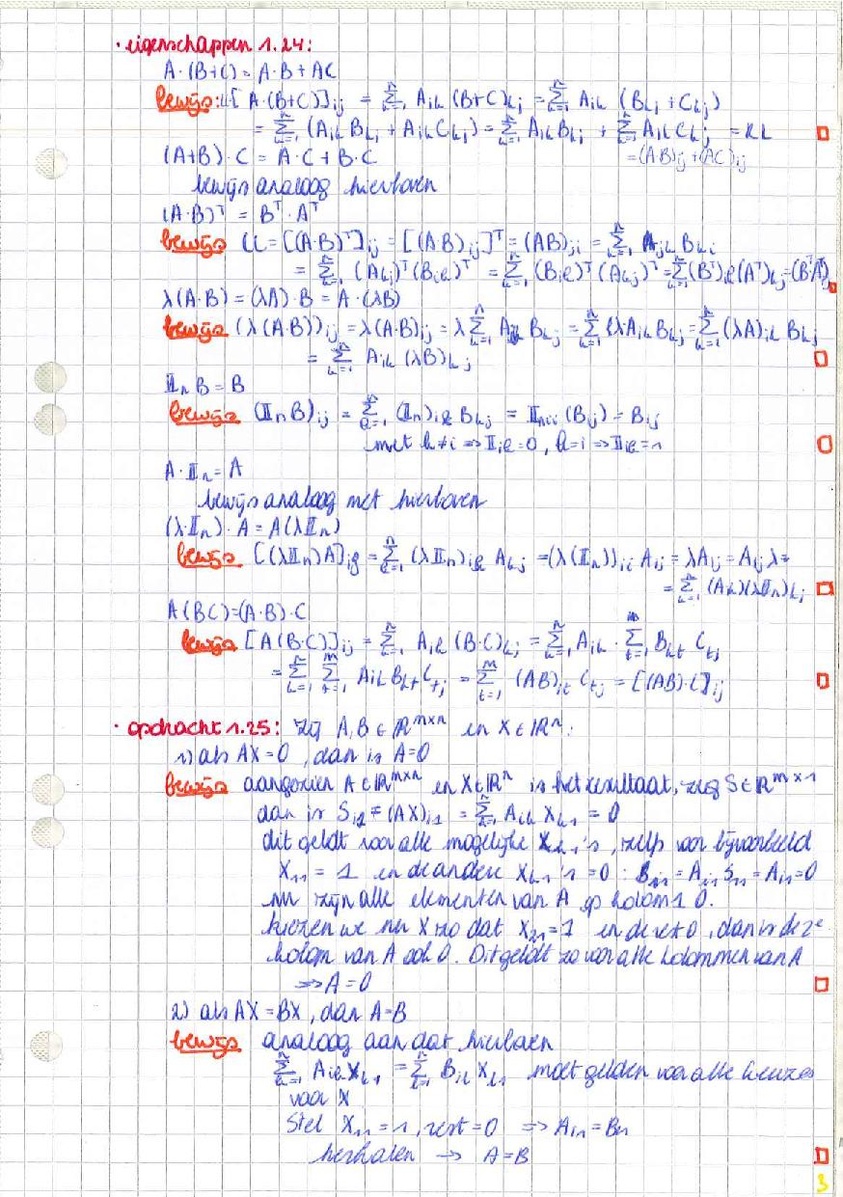 · eigenschappen 1.24:
A·(B+C) = A·B + AC
bewijs: [A·(B+C)]ij = Σ(k=1→n) Aik (B+C)kj = Σ(k=1→n) Aik (Bkj + Ckj)
= Σ(k=1→n) (Aik Bkj + Aik Ckj) = Σ(k=1→n) Aik Bkj + Σ(k=1→n) Aik Ckj = RL
= (AB)ij + (AC)ij
(A+B)·C = A·C + B·C
bewijs analoog hierboven
(A·B)ᵀ = Bᵀ·Aᵀ
bewijs LL = [(A·B)ᵀ]ij = [(AB)ij]ᵀ = (AB)ji = Σ(k=1→n) Ajk Bki
= Σ(k=1→n) (Akj)ᵀ(Bik)ᵀ = Σ(k=1→n) (Bik)ᵀ(Akj)ᵀ = Σ(Bᵀ)ik(Aᵀ)kj = (BᵀAᵀ)
λ(A·B) = (λA)·B = A·(λB)
bewijs (λ(A·B))ij = λ(A·B)ij = λ Σ(k=1→n) Aik Bkj = Σ(k=1→n) λAik Bkj = Σ(k=1→n) (λA)ik Bkj
= Σ(k=1→n) Aik (λB)kj
𝕀n B = B
bewijs (𝕀n B)ij = Σ(k=1→n) (𝕀n)ik Bkj = 𝕀nii (Bij) = Bij
met k≠i ⇒ 𝕀ik = 0, k=i ⇒ 𝕀ik = 1
A·𝕀n = A
bewijs analoog met hierboven
(λ·𝕀n)·A = A(λ𝕀n)
bewijs [(λ𝕀n)A]ij = Σ(k=1→n) (λ𝕀n)ik Akj = (λ(𝕀n))ii Aij = λAij = Aij λ =
= Σ(k=1→n) (Aik)(λ𝕀n)kj
A(BC) = (A·B)·C
bewijs [A(B·C)]ij = Σ(k=1→n) Aik (B·C)kj = Σ(k=1→n) Aik · Σ(t=1→m) Bkt Ctj
= Σ(k=1→n) Σ(t=1→m) Aik Bkt Ctj = Σ(t=1→m) (AB)it Ctj = [(AB)·C]ij
· opdracht 1.25: zij A,B ∈ ℝ^m×n en X ∈ ℝ^n.
1) als AX = 0, dan is A = 0
bewijs aangezien A ∈ ℝ^m×n en X ∈ ℝ^n is het resultaat, zeg S ∈ ℝ^m×1
dan is Si1 = (AX)i1 = Σ(k=1→n) Aik Xk1 = 0
dit geldt voor alle mogelijke Xk1's, zelfs voor bijvoorbeeld
X11 = 1 en de andere Xk1's = 0 : = Ai1 = 0
nu zijn alle elementen van A op kolom 1 0.
kiezen we nu X zo dat X21 = 1 en de rest 0, dan is de 2e
kolom van A ook 0. Dit geldt zo voor alle kolommen van A
⇒ A = 0
2) als AX = BX, dan A = B
bewijs analoog aan dat hierboven
Σ(k=1→n) Aik Xk1 = Σ(k=1→n) Bik Xk1 moet gelden voor alle keuzes
voor X
Stel X11 = 1, rest = 0 ⇒ Ai1 = Bi1
herhalen → A = B
3